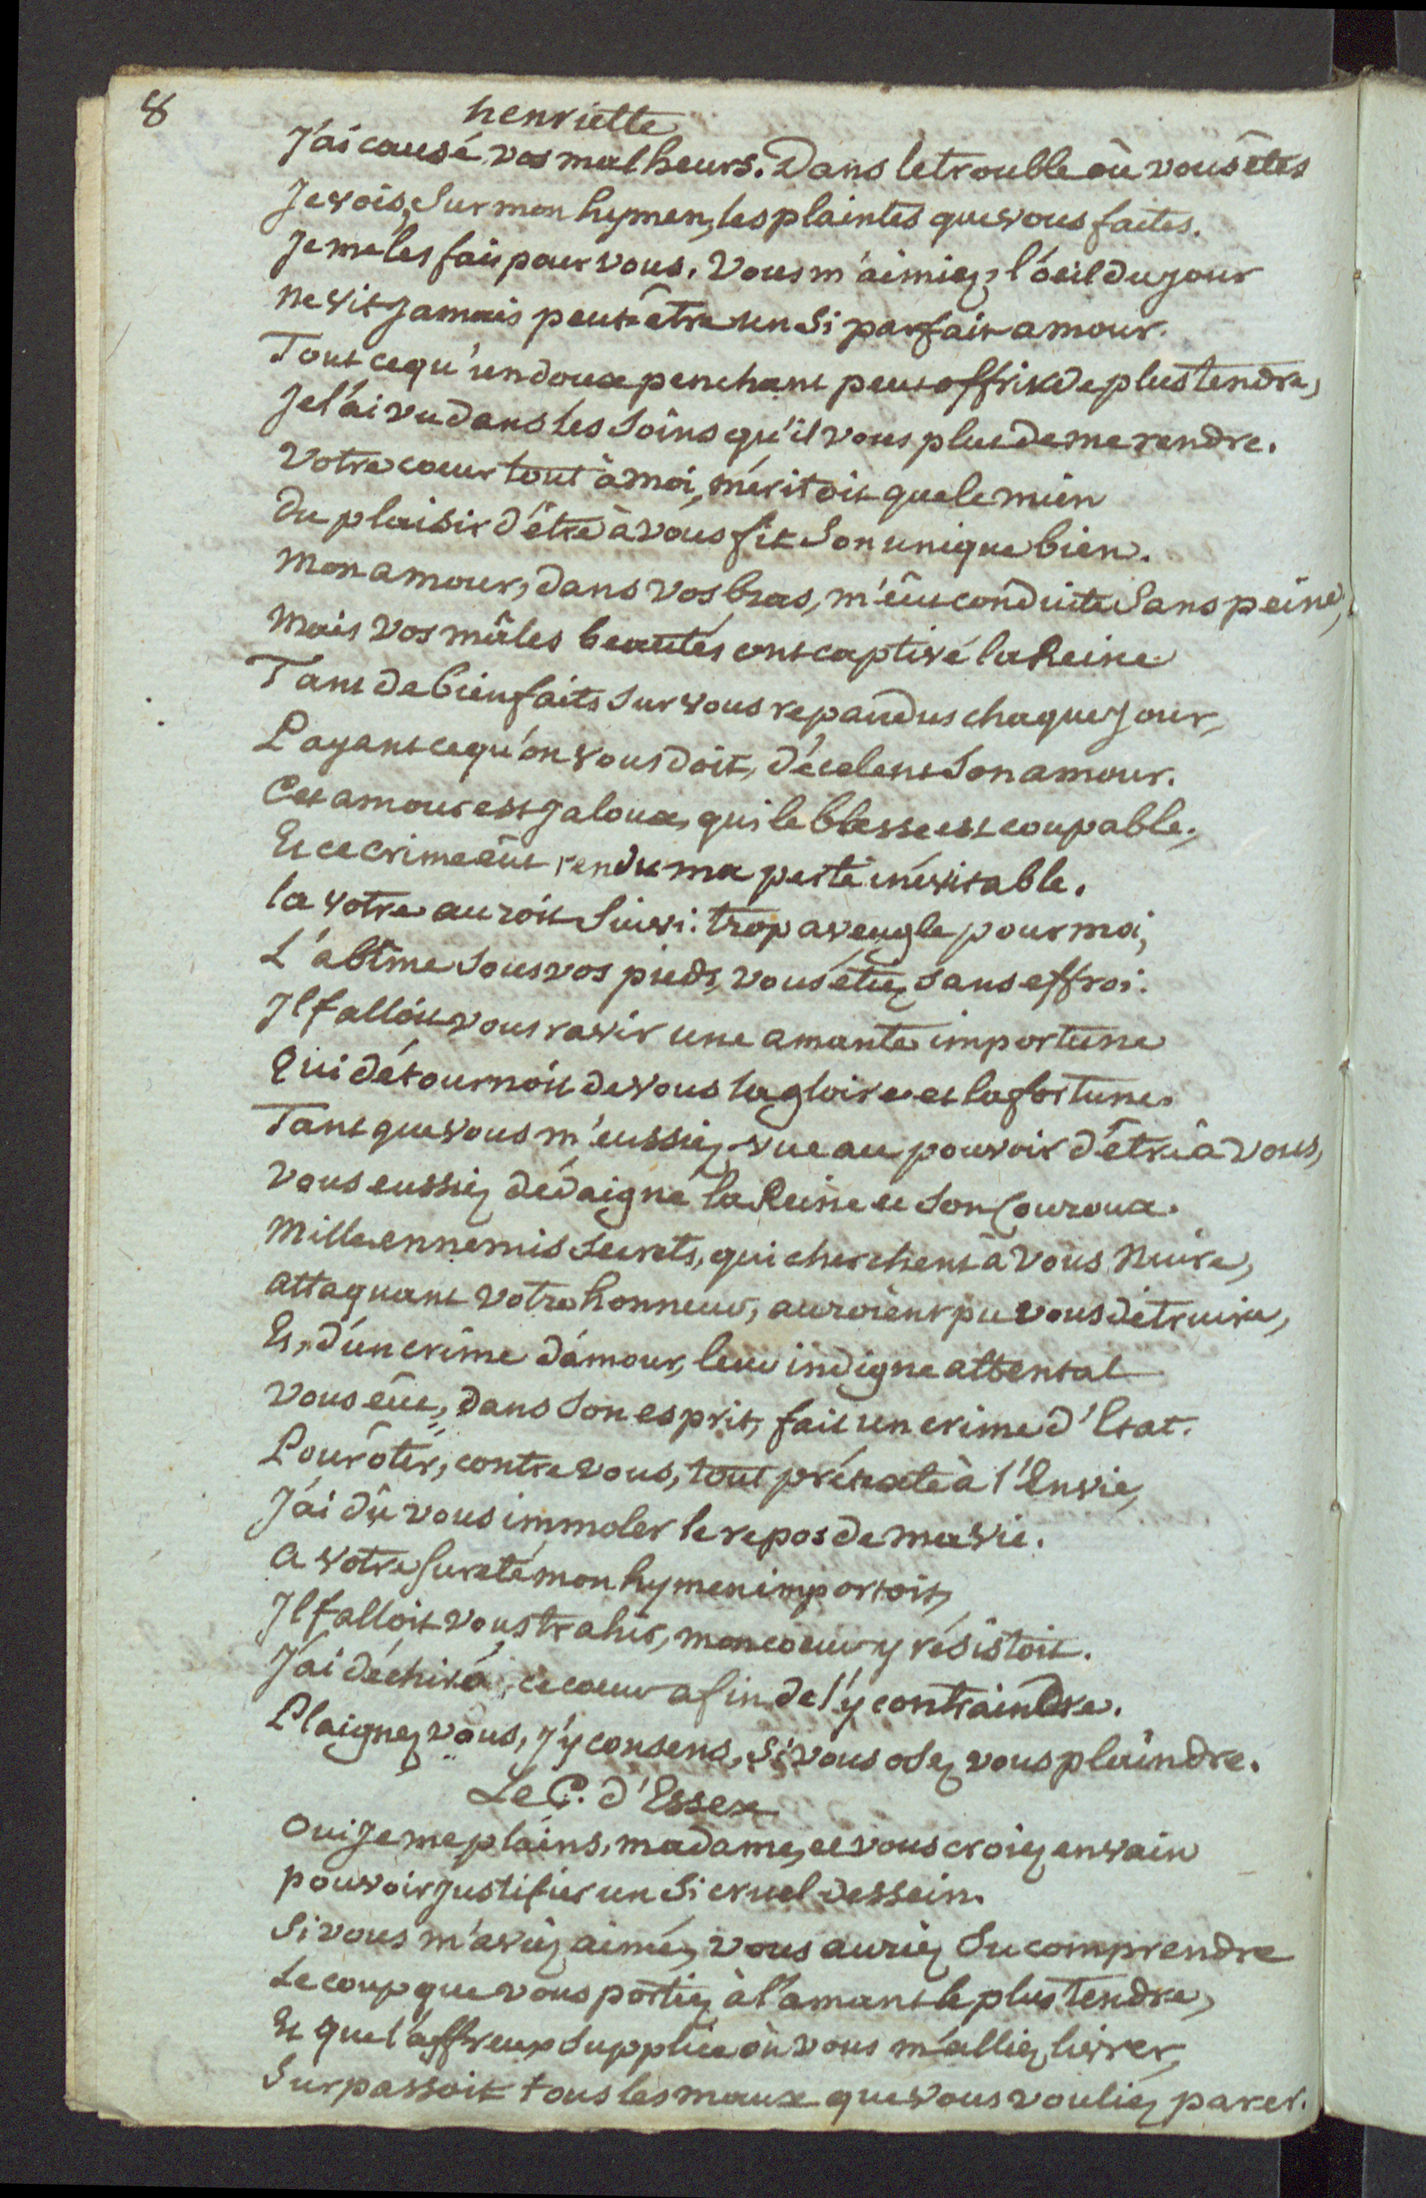 8
henriette
J'ai causé vos malheurs. Dans le trouble où vous êtes
Je vois, Sur mon hymen, les plaintes que vous faites.
Je me les fais pour vous. Vous m'aimiez, l'oeil du jour
ne vit Jamais peut être un Si parfait amour.
Tout ce qu'un doux penchant peut offrir de plus tendre,
Je l'ai vu dans les Soins qu'il vous plut de me rendre.
Votre coeur tout à moi, méritoit que le mien
Du plaisir d'être à vous fit Son unique bien.
Mon amour, dans vos bras, m'eût conduite Sans peine,
Mais vos mâles beautés ont captivé la Reine
Tant de bienfaits Sur vous repandus chaque Jour,
Payant ce qu'on vous doit, décelent Son amour.
Cet amour est Jaloux, qui le blesse est coupable,
Et ce crime eût rendu ma perte inévitable.
la votre auroit Suivi: trop aveugle pour moi,
L'abîme Sous vos pieds, vous étiez Sans effroi.
Il falloit vous ravir une amante importune
Qui détournoit de vous la gloire et la fortune.
Tant que vous m'eussiez vue au pouvoir d'être à vous,
Vous eussiez dédaigné la Reine et Son Couroux.
Mille ennemis Secrets, qui cherchent à vous Nuire,
attaquant votre honneur, auroient pu vous détruire,
Et, d'un crime d'amour, leur indigne attentat
Vous eût, dans Son esprit, fait un crime d'Etat.
Pour ôter, contre vous, tout prétexte à l'Envie,
J'ai dû vous immoler le repos de ma vie.
A votre Sureté mon hymen importoit,
Il falloit vous trahir, mon coeur y résistoit.
J'ai déchiré, ce coeur afin de l'y contraindre.
Plaignez vous, J'y consens, Si vous osez vous plaindre.
Le C. d'Essex
Oui Je me plains, madame, et vous croiez en vain
pouvoir Justifier un Si cruel dessein.
Si vous m'aviez aimé, vous auriez Su comprendre
Le coup que vous portiez à l'amant le plus tendre,
Et que l'affreux Supplice où vous m'alliez livrer,
Surpassoit tous les maux que vous vouliez parer.